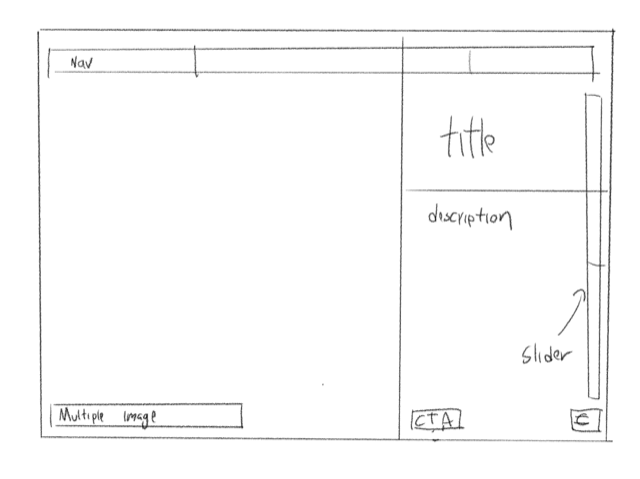 Nav
title
discription
slider
Multiple Image
CTA
E